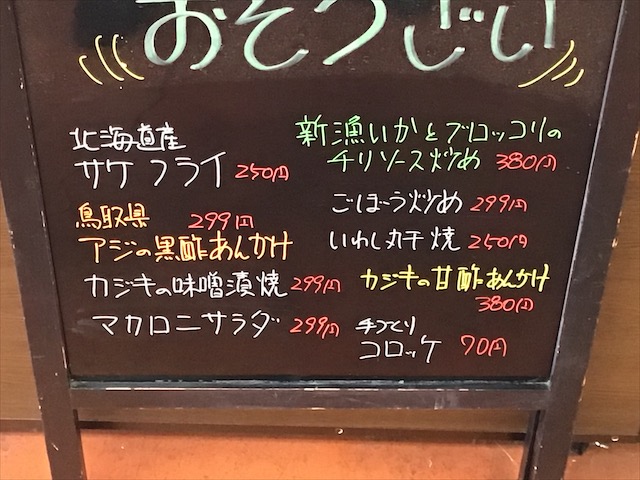 おそうざい
北海道産
サケフライ 250円
鳥取県 299円
アジの黒酢あんかけ
カジキの味噌漬焼 299円
マカロニサラダ 299円
新漁いかとブロッコリの
チリソース炒め 380円
ごぼう炒め 299円
いわし丸干焼 250円
カジキの甘酢あんかけ
380円
手づくり
コロッケ 70円